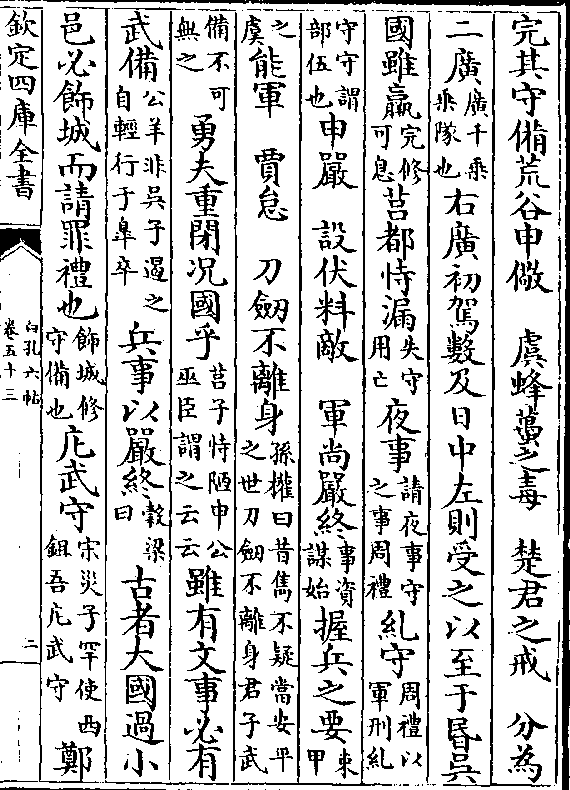 完其守備荒谷申儆　虞蜂蠆之毒　楚君之戒　分為
二廣廣千乘乘隊也右廣初駕數及日中左則受之以至于昬吳
國雖羸完修可息莒都恃漏失守用亡夜事請夜事守之事周禮糺守周禮以軍刑糺
守守謂部伍也申嚴　設伏料敵　軍尚嚴終事資謀始握兵之要東甲
之虞能軍　賈怠　刀劒不離身孫權曰昔雋不疑當安平之世刀劒不離身君子武
備不可無之勇夫重閉况國乎莒子恃陋申公巫臣謂之云云雖有文事必有
武備公羊非吳子遏之自輕行于臯卒兵事以嚴終穀梁曰古者大國過小
邑必飾城而請罪禮也飾城修守備也庀武守宋災子罕使西鉏吾庀武守鄭
欽定四庫全書
白孔六帖
卷五十三
二